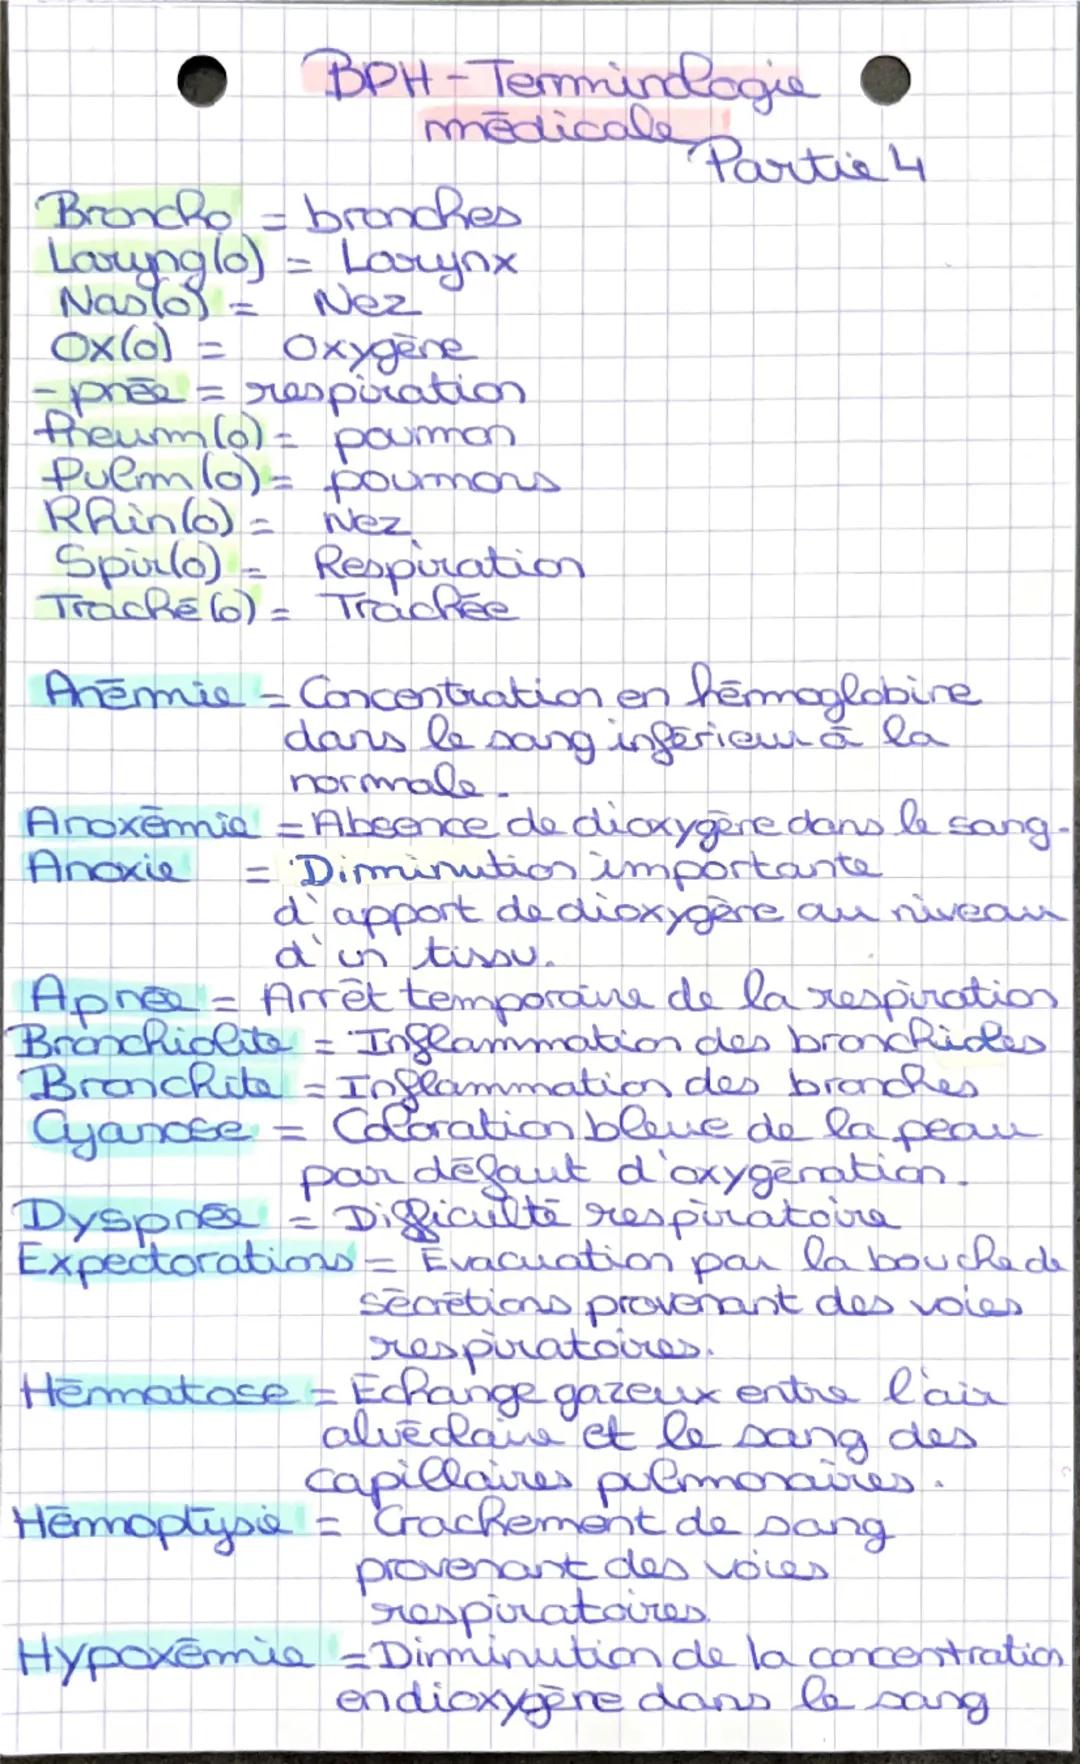 BPH - Terminologie
médicale
Partie 4
Broncho = bronches
Laryng(o) = Larynx
Nas(o) = Nez
Ox(o) = Oxygène
-pnée = respiration
Pneum(o) = poumon
Pulm(o) = poumons
Rhin(o) = Nez
Spir(o) = Respiration
Traché(o) = Trachée
Anémie = Concentration en hémoglobine
dans le sang inférieur à la
normale.
Anoxémie = Absence de dioxygène dans le sang.
Anoxie = Diminution importante
d'apport de dioxygène au niveau
d'un tissu.
Apnée = Arrêt temporaire de la respiration
Bronchiolite = Inflammation des bronchioles
Bronchite = Inflammation des bronches
Cyanose = Coloration bleue de la peau
par défaut d'oxygénation.
Dyspnée = Difficulté respiratoire
Expectorations = Évacuation par la bouche de
sécrétions provenant des voies
respiratoires.
Hématose = Échange gazeux entre l'air
alvéolaire et le sang des
capillaires pulmonaires.
Hémoptysie = Crachement de sang
provenant des voies
respiratoires.
Hypoxémie = Diminution de la concentration
en dioxygène dans le sang